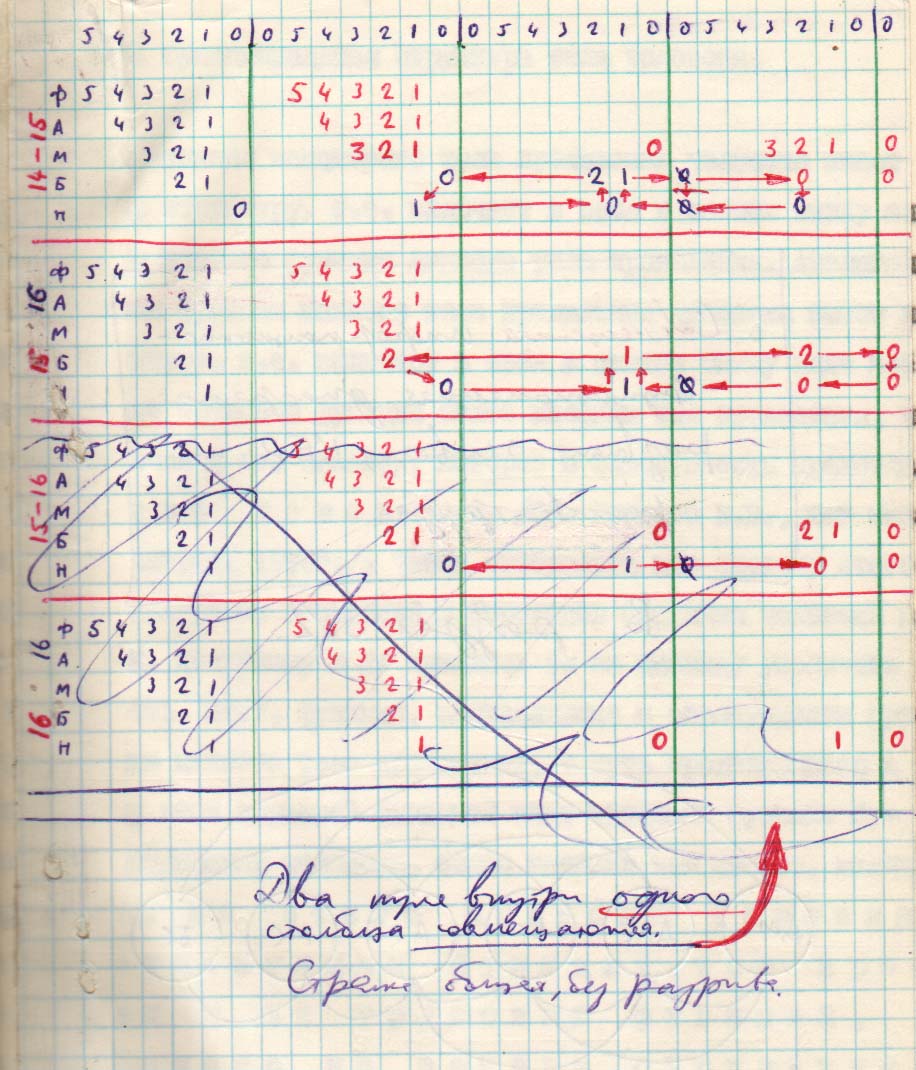 5 4 3 2 1 0 0 5 4 3 2 1 0 0 5 4 3 2 1 0 0 5 4 3 2 1 0 0
14-15
Ф 5 4 3 2 1 5 4 3 2 1
А 4 3 2 1 4 3 2 1
М 3 2 1 3 2 1 0 3 2 1 0
Б 2 1 0 2 1 0 0 0
Н 0 1 0 0 0
15 16
Ф 5 4 3 2 1 5 4 3 2 1
А 4 3 2 1 4 3 2 1
М 3 2 1 3 2 1
Б 2 1 2 1 2 0
1 0 1 0 0 0
15-16
Ф 5 4 3 2 1 5 4 3 2 1
А 4 3 2 1 4 3 2 1
М 3 2 1 3 2 1
Б 2 1 2 1 0 2 1 0
Н 1 0 1 0 0 0
16 16
Ф 5 4 3 2 1 5 4 3 2 1
А 4 3 2 1 4 3 2 1
М 3 2 1 3 2 1
Б 2 1 2 1
Н 1 1 0 1 0
Два нуля внутри одного
столбца совмещаются.
общая, без разрыва.